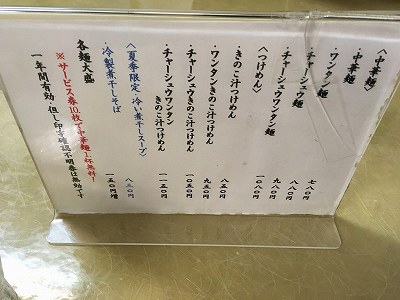 〈中華麺〉
・中華麺 七八〇円
・ワンタン麺 八八〇円
・チャーシュウ麺 九八〇円
・チャーシュウワンタン麺 一〇八〇円
〈つけめん〉
・きのこ汁つけめん 八五〇円
・ワンタンきのこ汁つけめん 九五〇円
・チャーシュウ
きのこ汁つけめん 一〇五〇円
・チャーシュウワンタン
きのこ汁つけめん 一一五〇円
〈夏季限定・冷い煮干しスープ〉
・冷製煮干しそば 八五〇円
各麺大盛 一五〇円増
※サービス券10枚で中華麺1杯無料!
一年間有効・但し印字確認不明巻は無効です